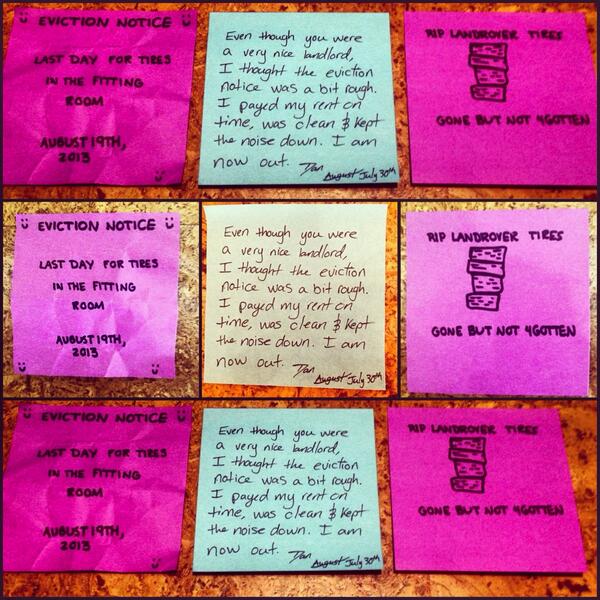 EVICTION NOTICE
LAST DAY FOR TIRES
IN THE FITTING
ROOM
AUGUST 19TH,
2013
Even though you were
a very nice landlord,
I thought the eviction
notice was a bit rough.
I payed my rent on
time, was clean & kept
the noise down. I am
now out. Dan
August July 30th
RIP LANDROVER TIRES
GONE BUT NOT 4GOTTEN
EVICTION NOTICE
LAST DAY FOR TIRES
IN THE FITTING
ROOM
AUGUST 19TH,
2013
Even though you were
a very nice landlord,
I thought the eviction
notice was a bit rough.
I payed my rent on
time, was clean & kept
the noise down. I am
now out. Dan
August July 30th
RIP LANDROVER TIRES
GONE BUT NOT 4GOTTEN
EVICTION NOTICE
LAST DAY FOR TIRES
IN THE FITTING
ROOM
AUGUST 19TH,
2013
Even though you were
a very nice landlord,
I thought the eviction
notice was a bit rough.
I payed my rent on
time, was clean & kept
the noise down. I am
now out. Dan
August July 30th
RIP LANDROVER TIRES
GONE BUT NOT 4GOTTEN